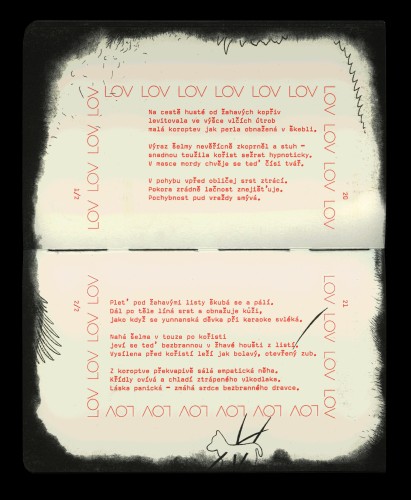 LOV LOV LOV LOV LOV LOV LOV
LOV LOV LOV LOV
LOV LOV LOV LOV
Na cestě husté od žahavých kopřiv
levitovala ve výšce vlčích útrob
malá koroptev jak perla obnažená v škebli.
Výraz šelmy nevěřícně zkoprněl a stuh –
snadnou toužila kořist sežrat hypnoticky.
V masce mordy chvěje se teď čísi tvář.
V pohybu vpřed obličej srst ztrácí.
Pokora zrádně lačnost znejišťuje.
Pochybnost pud vraždy smývá.
1/2
20
2/2
21
LOV LOV LOV LOV
LOV LOV LOV LOV
Pleť pod žahavými listy škubá se a pálí.
Dál po těle líná srst a obnažuje kůži,
jako když se yunnanská děvka při karaoke svléká.
Nahá šelma v touze po kořisti
jeví se teď bezbrannou v žhavé houšti z listí.
Vysílena před kořistí leží jak bolavý, otevřený zub.
Z koroptve překvapivě sálá empatická něha.
Křídly ovívá a chladí ztrápeného vlkodlaka.
Láska panická – zmáhá srdce bezbranného dravce.
LOV LOV LOV LOV LOV LOV LOV